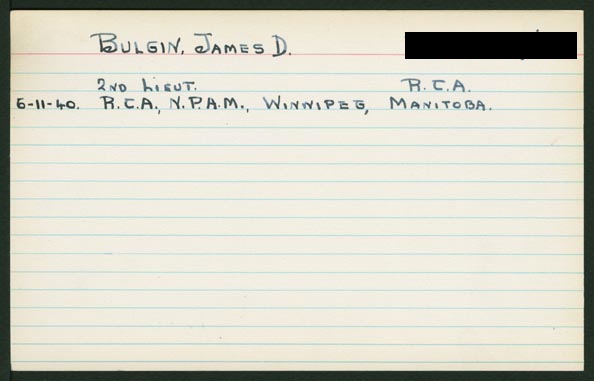 BULGIN, JAMES D.
2ND LIEUT. R.C.A.
6-11-40. R.C.A., N.P.A.M., WINNIPEG, MANITOBA.